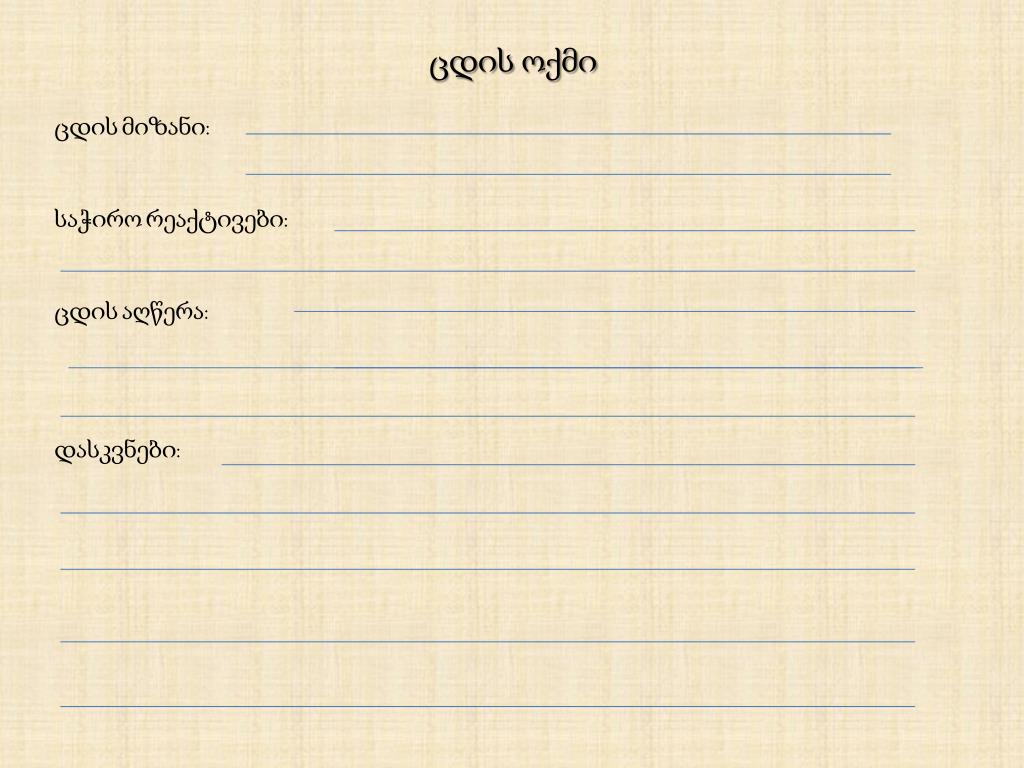 ცდის ოქმი
ცდის მიზანი:
საჭირო რეაქტივები:
ცდის აღწერა:
დასკვნები: